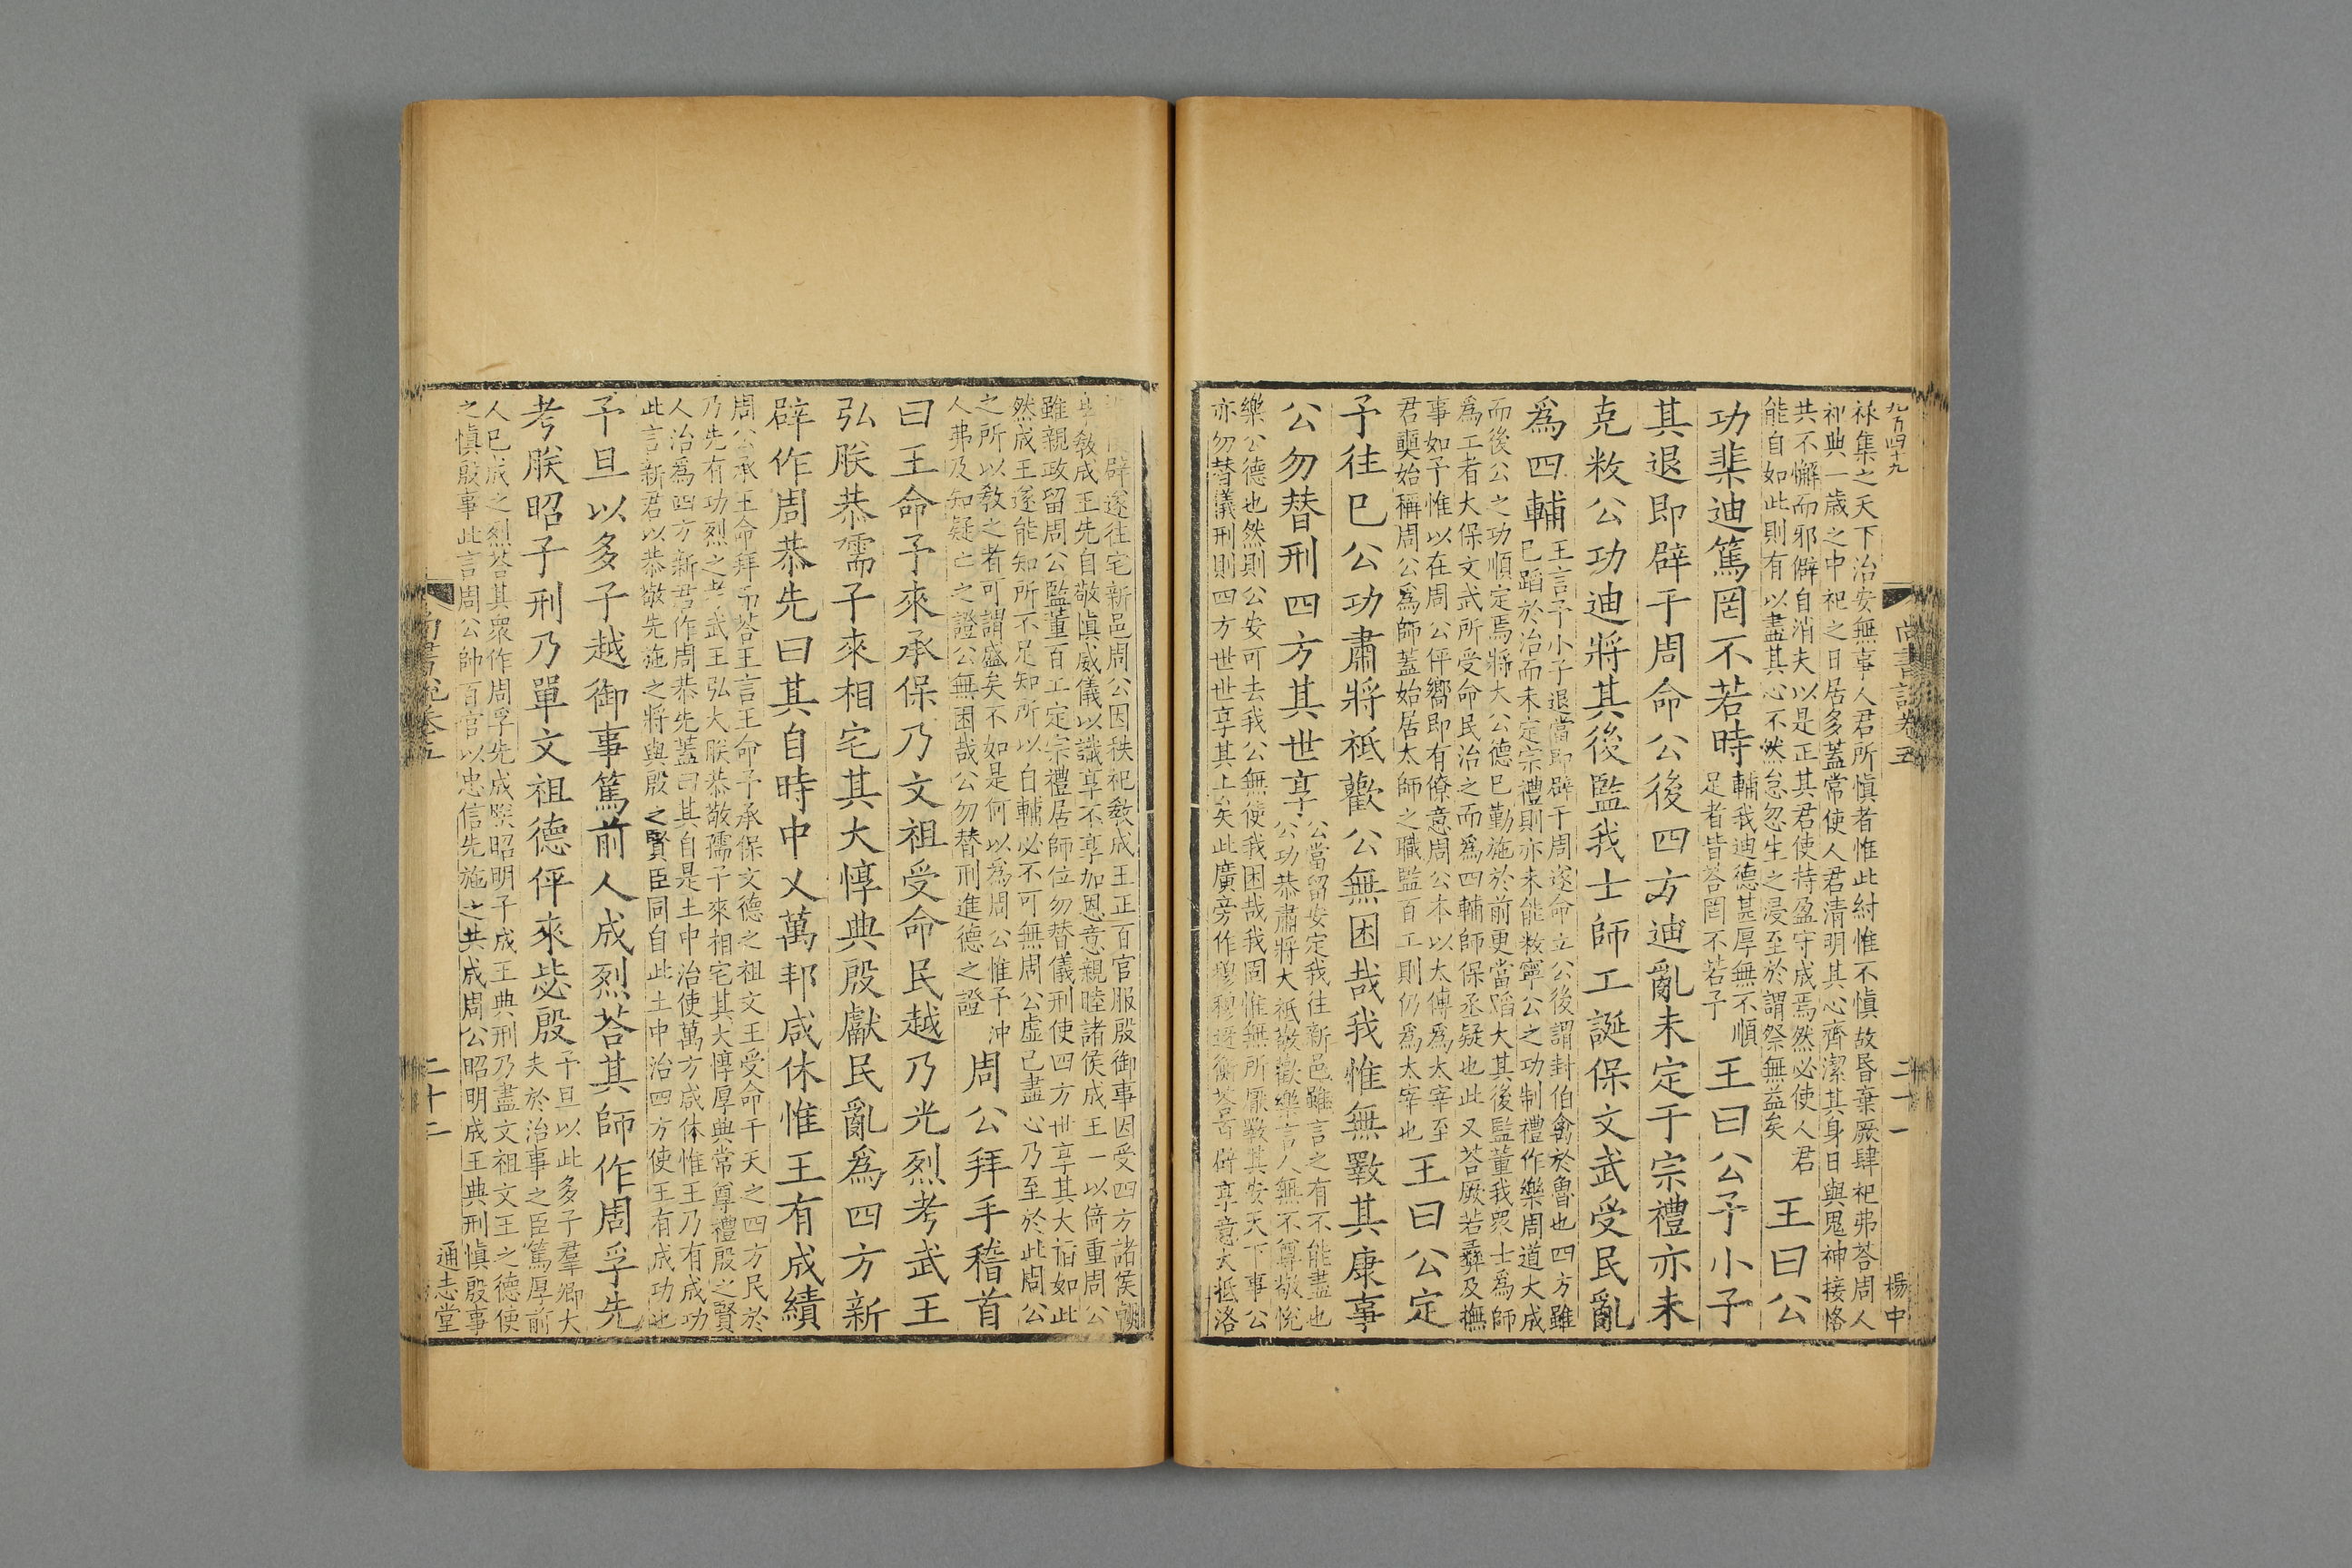 九百四十九
尚書說卷五
二十一
楊中
祿集之天下治安無事人君所愼者惟此紂惟不愼故昬棄厥肆祀弗荅周人
祀典一歲之中祀之日居多蓋常使人君清明其心齊潔其身日與鬼神接恪
共不懈而邪僻自消夫以是正其君使持盈守成焉然必使人君
能自如此則有以盡其心不然怠忽生之浸至於謂祭無益矣
王曰公
功棐迪篤罔不若時
輔我迪德甚厚無不順
足者皆荅罔不若子
王曰公予小子
其退即辟于周命公後四方迪亂未定于宗禮亦未
克敉公功迪將其後監我士師工誕保文武受民亂
爲四輔
王言予小子退當即辟于周遂命立公後謂封伯禽於魯也四方雖
已蹈於治而未定宗禮則亦未能敉寧公之功制禮作樂周道大成
而後公之功順定焉將大公德已勤施於前更當蹈大其後監董我衆士爲師
爲工者大保文武所受命民治之而爲四輔師保丞疑也此又荅厥若彝及撫
事如予惟以在周公伻嚮即有僚意周公本以太傅爲太宰至
君奭始稱周公爲師蓋始居太師之職監百工則仍爲太宰也
王曰公定
予往已公功肅將祗歡公無困哉我惟無斁其康事
公勿替刑四方其世享
公當留安定我往新邑雖言之有不能盡也
公功恭肅將大祗敬歡樂言人無不尊敬悅
樂公德也然則公安可去我公無使我困哉我固惟無所厭斁其安天下事公
亦勿替儀刑則四方世世享其上矣此廣旁作穆穆迓衡荅百辟享意大抵洛
辟遂往宅新邑周公因秩祀敎成王正百官服殷御事因受四方諸侯朝
享敎成王先自敬愼威儀以識享不享加恩意親睦諸侯成王一以倚重周公
雖親政留周公監董百工定宗禮居師位勿替儀刑使四方世享其大㫖如此
然成王遂能知所不足知所以自輔必不可無周公虛已盡心乃至於此周公
之所以敎之者可謂盛矣不如是何以爲周公惟予沖
人弗及知疑亡之證公無困哉公勿替刑進德之證
周公拜手稽首
曰王命予來承保乃文祖受命民越乃光烈考武王
弘朕恭孺子來相宅其大惇典殷獻民亂爲四方新
辟作周恭先曰其自時中乂萬邦咸休惟王有成績
周公承王命拜而荅王言王命予承保文德之祖文王受命于天之四方民於
乃先有功烈之考武王弘大朕恭敬孺子來相宅其大惇厚典常尊禮殷之賢
人治爲四方新君作周恭先蓋曰其自是土中治使萬方咸休惟王乃有成功
此言新君以恭敬先施之將與殷之賢臣同自此土中治四方使王有成功也
予旦以多子越御事篤前人成烈荅其師作周孚先
考朕昭子刑乃單文祖德伻來毖殷
予旦以此多子羣卿大
夫於治事之臣篤厚前
人已成之烈荅其衆作周孚先成朕昭明子成王典刑乃盡文祖文王之德使
之愼殷事此言周公帥百官以忠信先施之共成周公昭明成王典刑愼殷事
尚書說卷五
二十二
通志堂